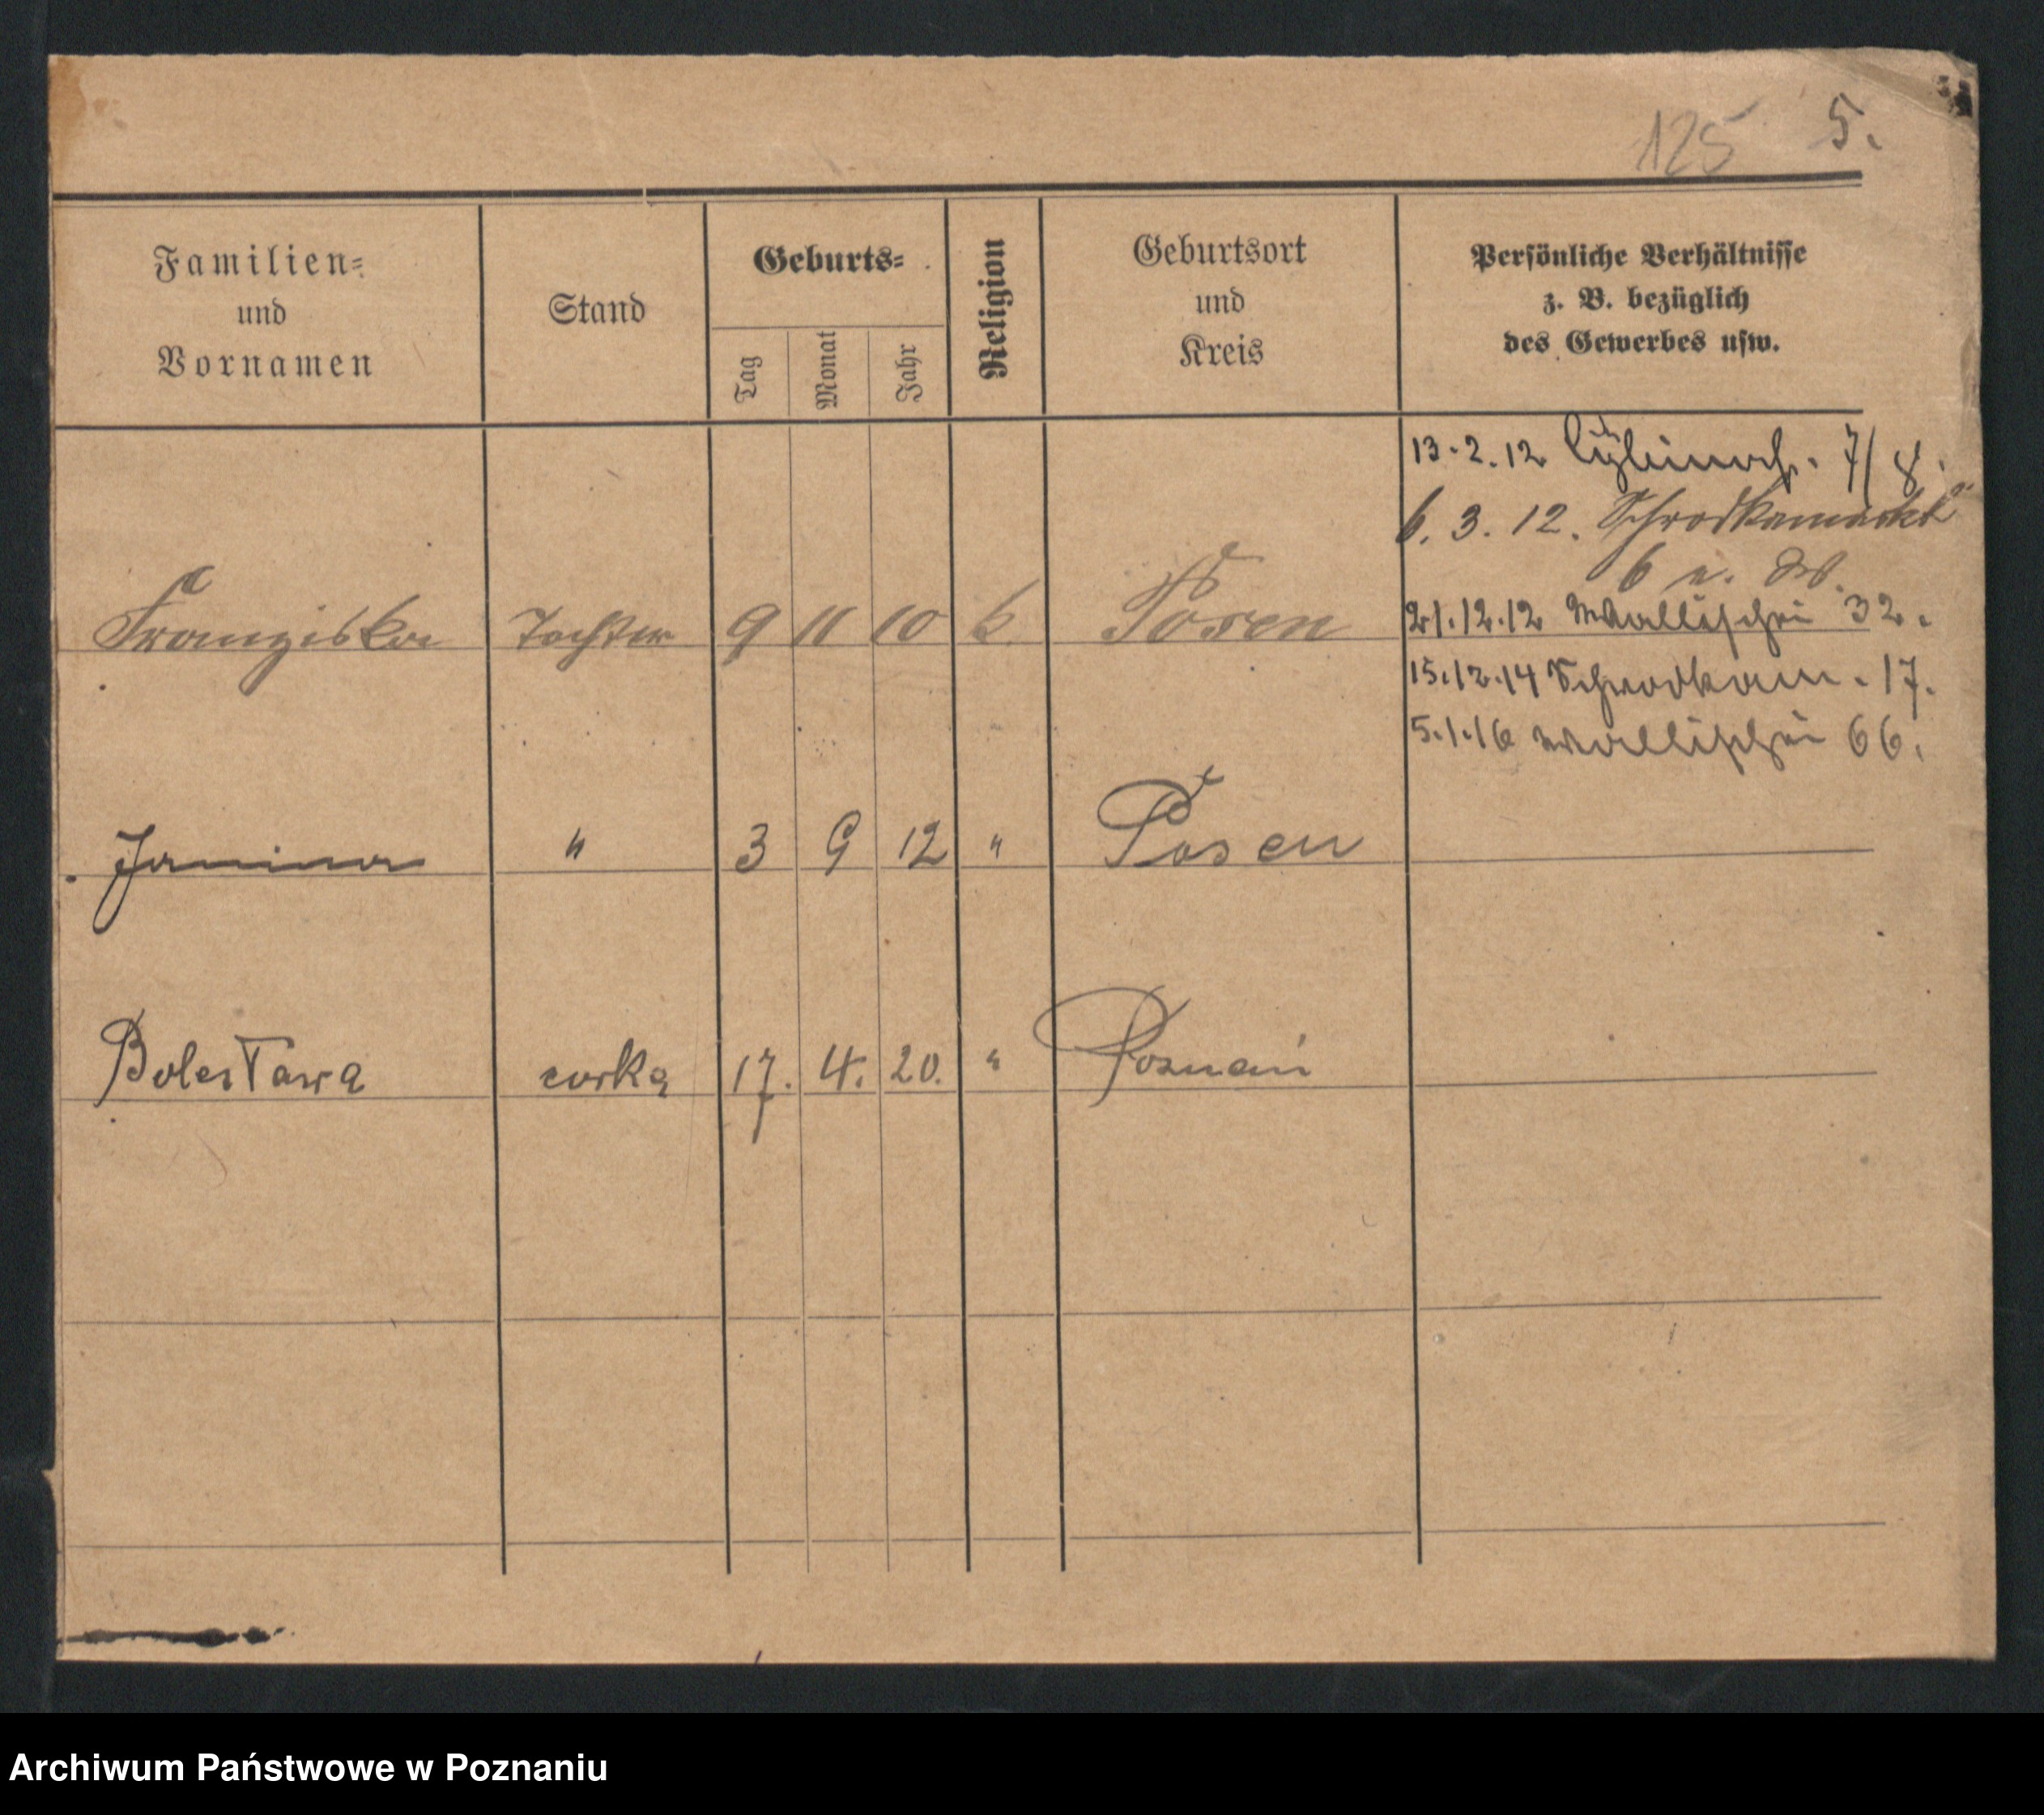 125 5.
Familien=
und
Vornamen
Stand
Geburts=
Tag
Monat
Jahr
Religion
Geburtsort
und
Kreis
Persönliche Verhältnisse
z. B. bezüglich
des Gewerbes usw.
13.2.12 Cybinasch. 7/8.
6. 3. 12. Schrodkamarkt
6 u.
Franziska Tochter 9 11 10 k. Posen
21.12.12 Wallischei 32.
15.12.14 Schrodkam. 17.
5.1.16 Wallischei 66.
Janina " 3 9 12 " Posen
Bolesława corka 17. 4. 20. " Poznań
Archiwum Państwowe w Poznaniu